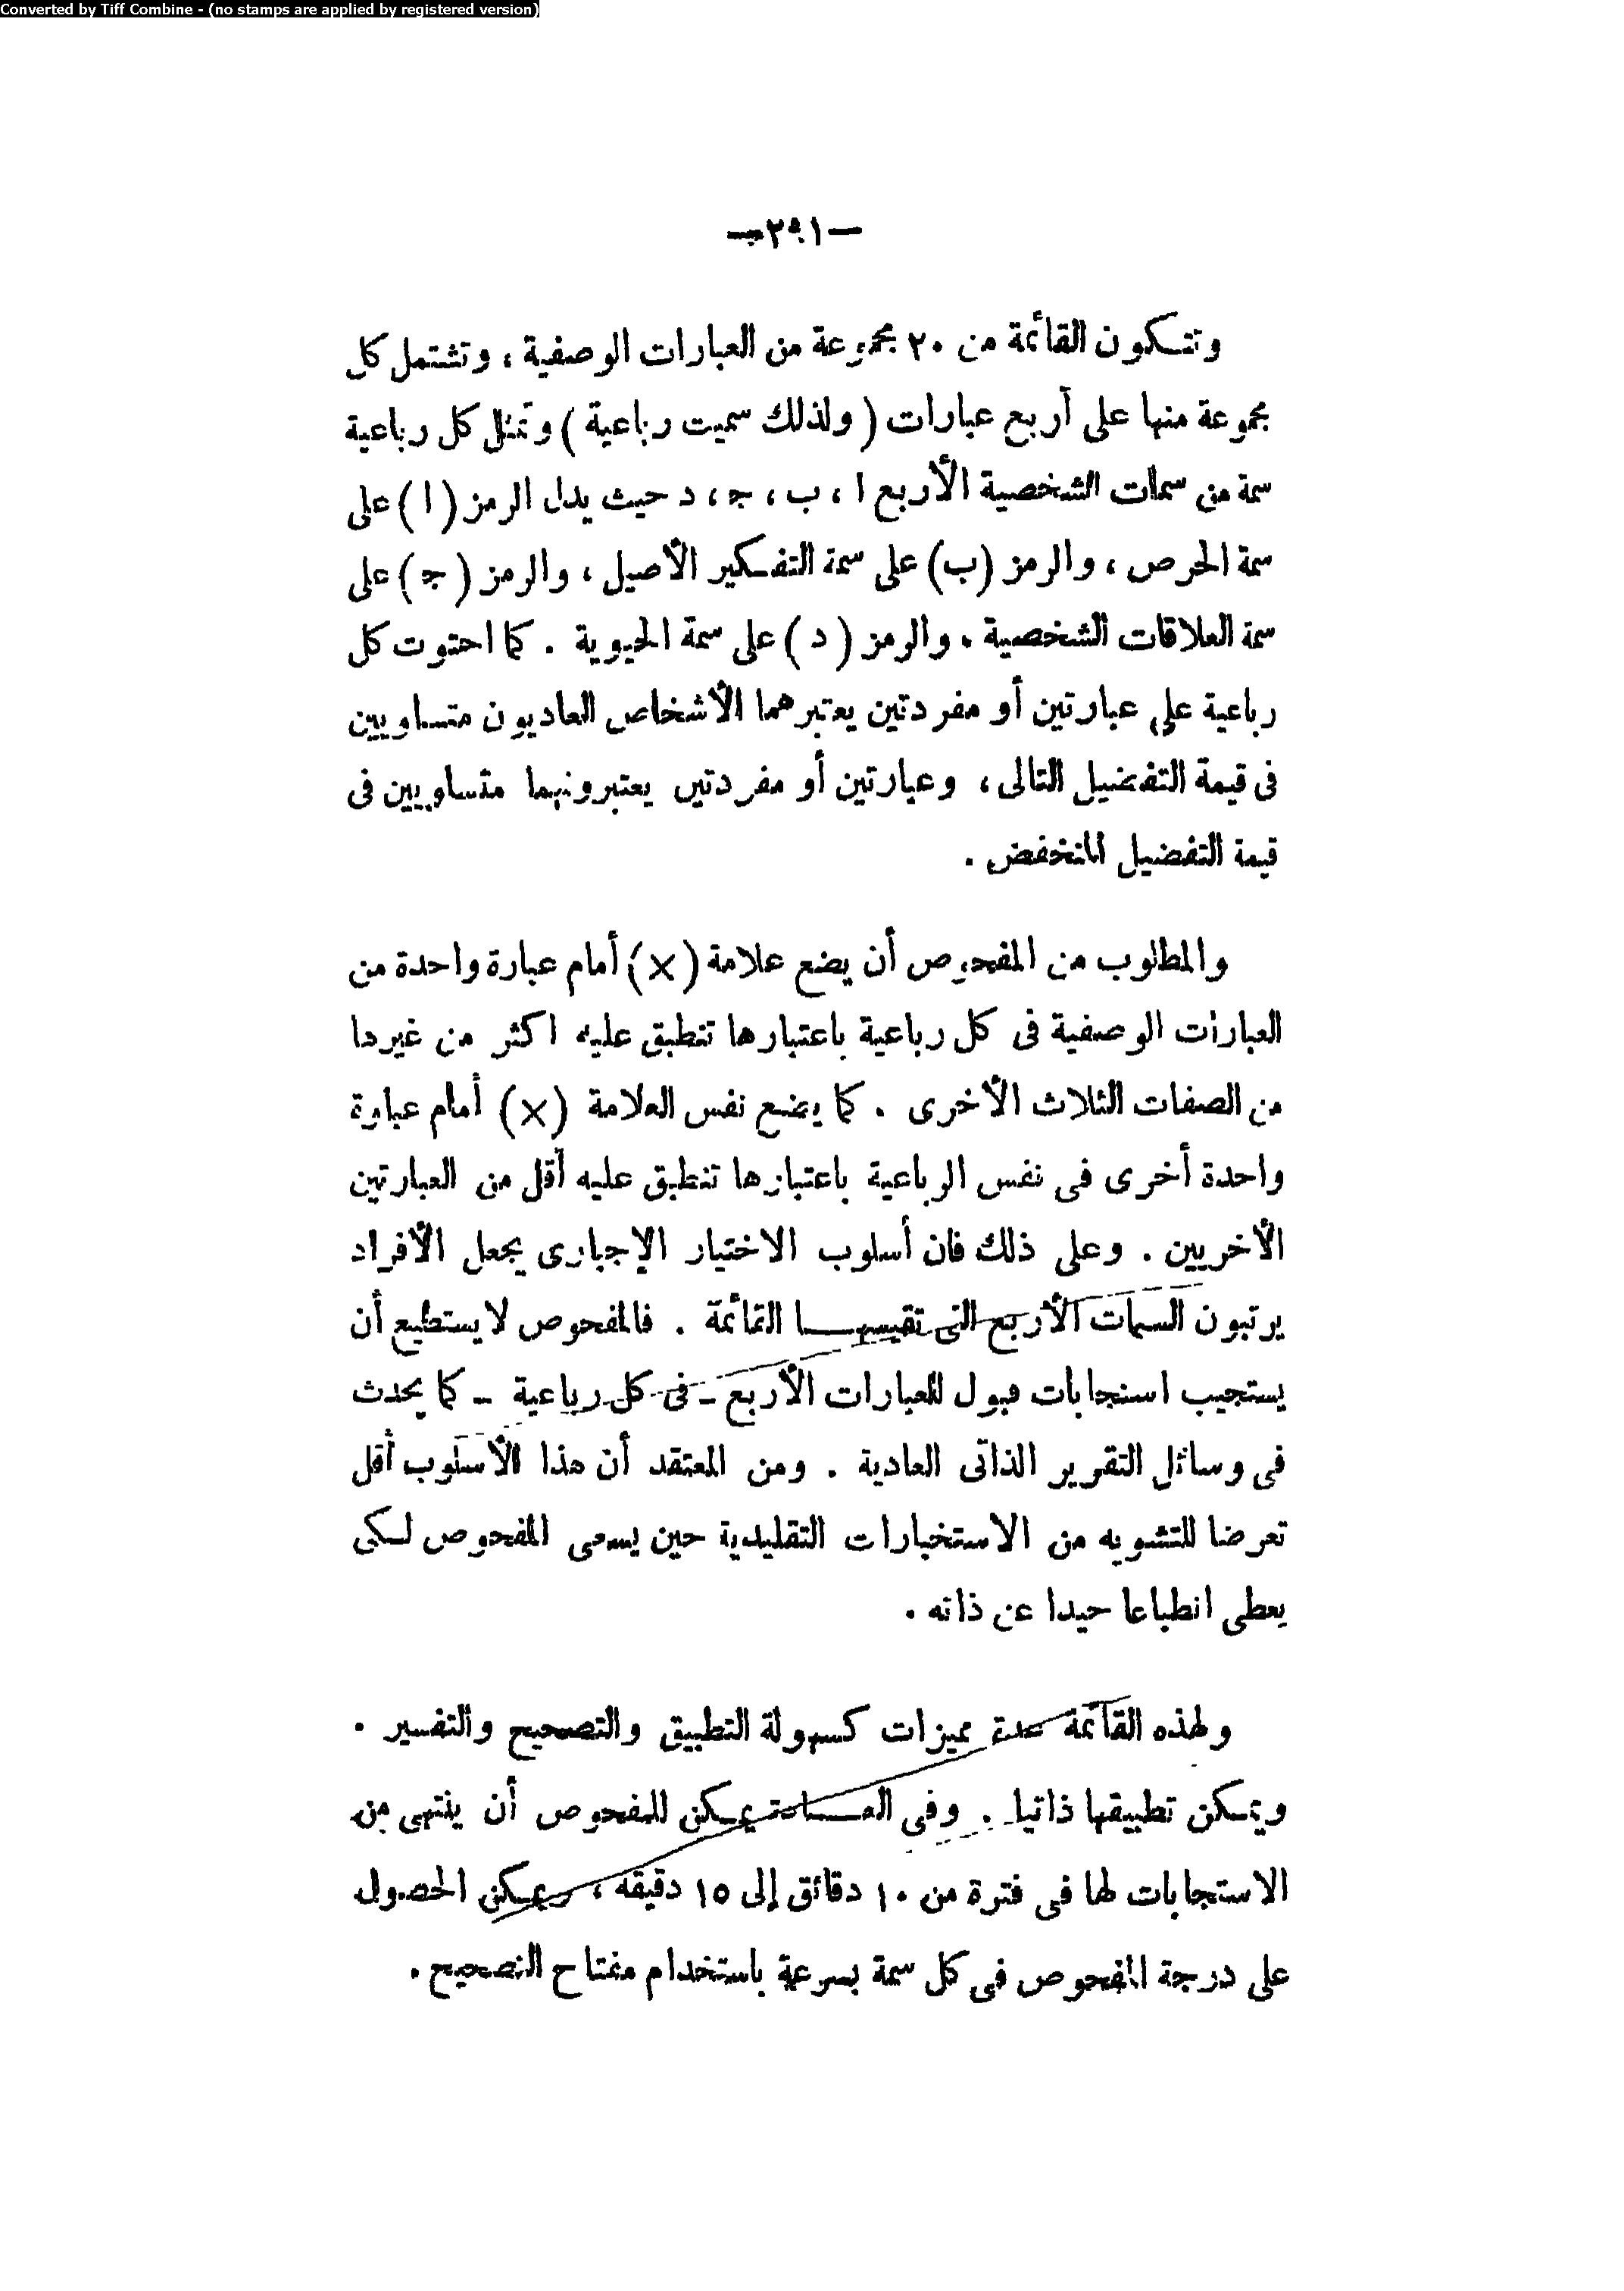 Converted by Tiff Combine - (no stamps are applied by registered version)
وتتكون القائمة من ٢٠ مجموعة من العبارات الوصفية ، وتشتمل كل
مجموعة منها على أربع عبارات ( ولذلك سميت رباعية ) وتمثل كل رباعية
سمة من سمات الشخصية الأربع ا ، ب ، ج ، د حيث يدل الرمز ( ا ) على
سمة الحرص ، والرمز (ب) على سمة التفكير الأصيل ، والرمز ( ج ) على
سمة العلاقات الشخصية ، والرمز ( د ) على سمة الحيوية . كما احتوت كل
رباعية على عبارتين أو مفردتين يعتبرهما الأشخاص العاديون متساويين
فى قيمة التفضيل التالى ، وعبارتين أو مفردتين يعتبرونهما متساويين فى
قيمة التفضيل المنخفض .
والمطلوب من المفحوص أن يضع علامة (×) أمام عبارة واحدة من
العبارات الوصفية فى كل رباعية باعتبارها تنطبق عليه اكثر من غيرها
من الصفات الثلاث الأخرى . كما يضع نفس العلامة (×) أمام عبارة
واحدة أخرى فى نفس الرباعية باعتبارها تنطبق عليه أقل من العبارتين
الأخريين . وعلى ذلك فان أسلوب الاختيار الإجبارى يجعل الأفراد
يرتبون السمات الأربع التى تقيسها القائمة . فالمفحوص لا يستطيع أن
يستجيب استجابات قبول للعبارات الأربع ـ فى كل رباعية ـ كما يحدث
فى وسائل التقرير الذاتى العادية . ومن المعتقد أن هذا الأسلوب أقل
تعرضا للتشويه من الاستخبارات التقليدية حين يسعى المفحوص لكى
يعطى انطباعا جيدا عن ذاته .
ولهذه القائمة عدة مميزات كسهولة التطبيق والتصحيح والتفسير .
ويمكن تطبيقها ذاتيا . وفى العادة يمكن للمفحوص أن ينتهى من
الاستجابات لها فى فترة من ١٠ دقائق إلى ١٥ دقيقة ، ويمكن الحصول
على درجة المفحوص فى كل سمة بسرعة باستخدام مفتاح التصحيح .